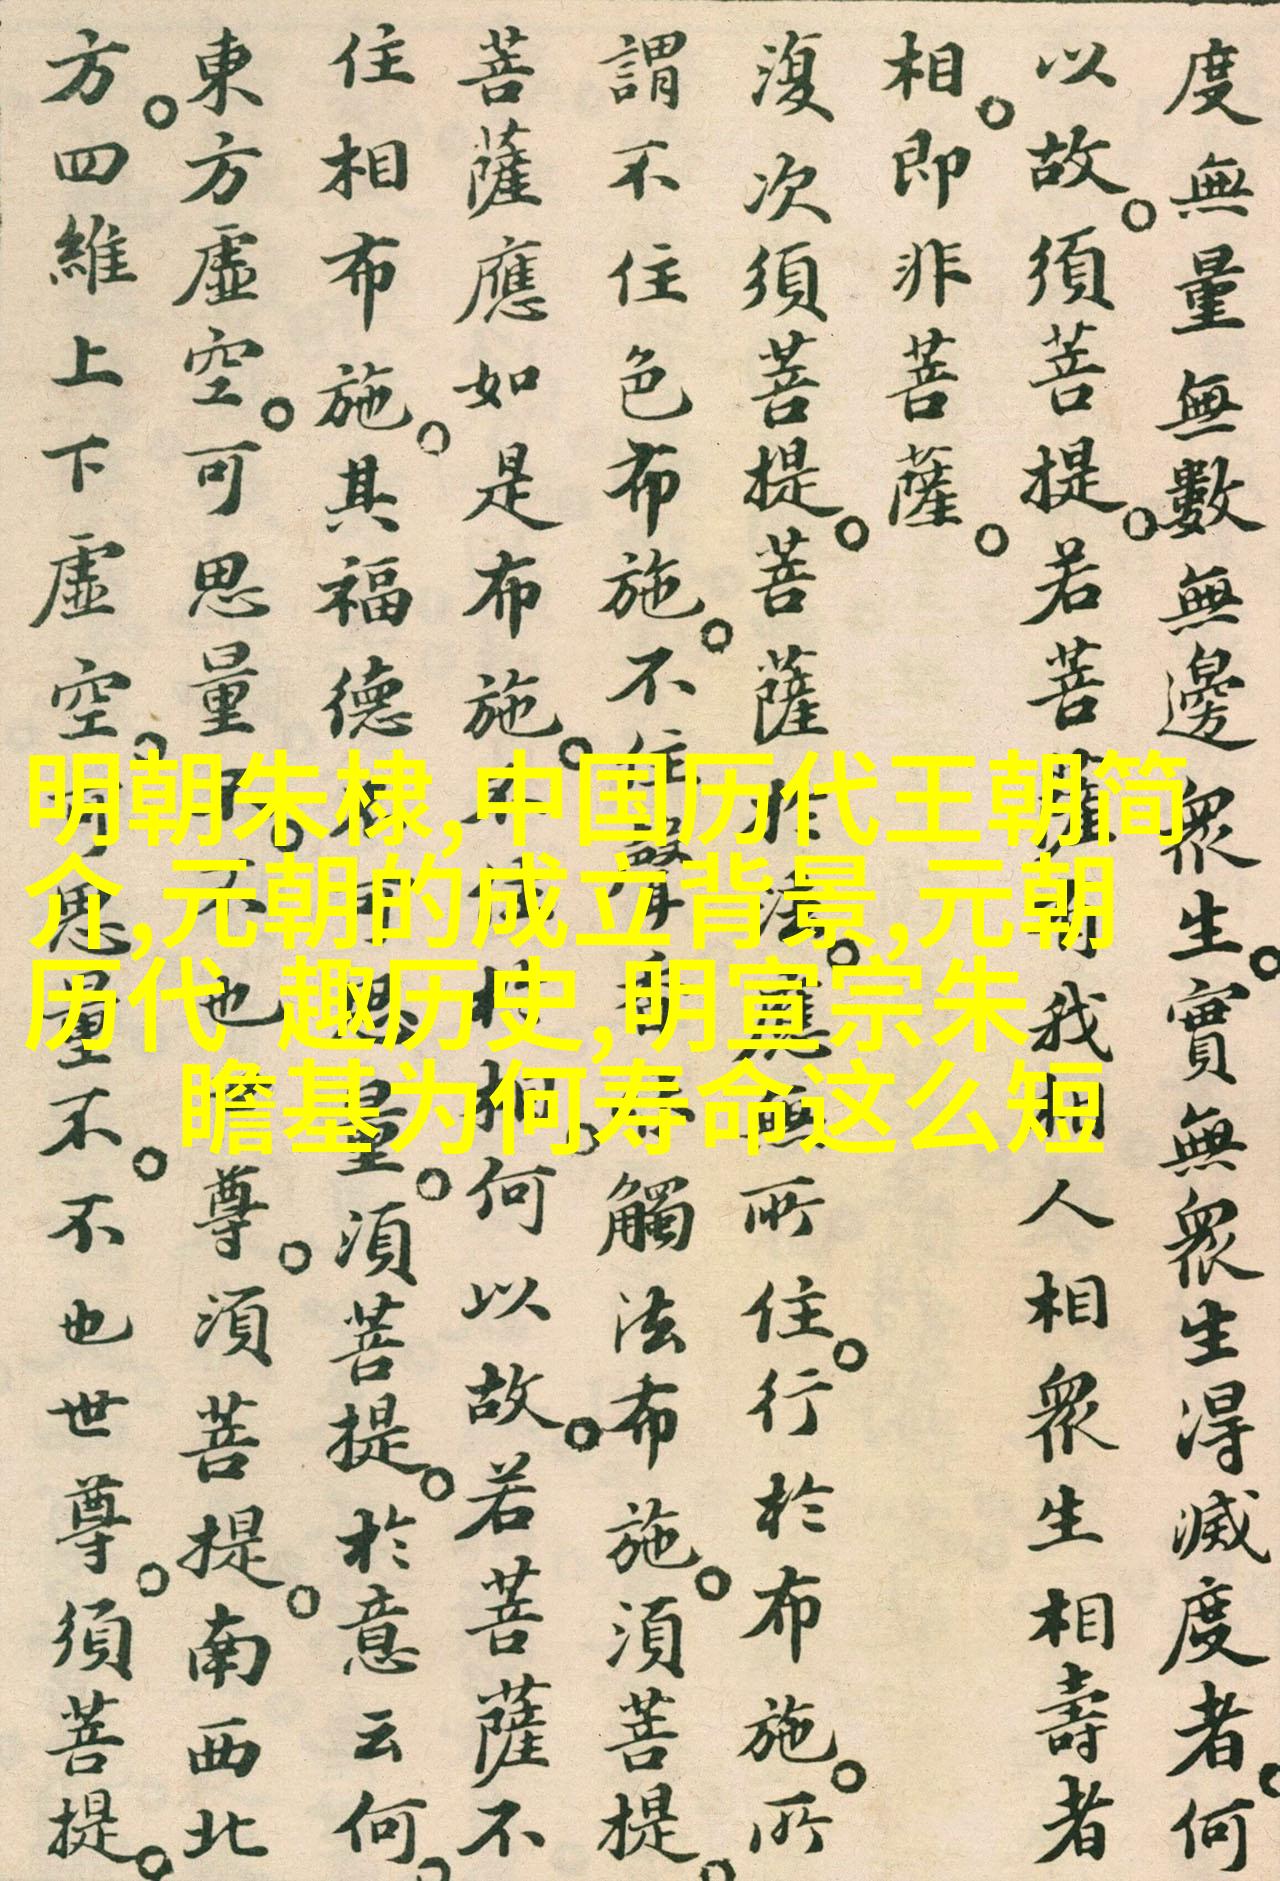 度無量無數無邊眾生。實無眾生得滅度者。何
以故。須菩提。若菩薩有我相人相眾生相壽者
相。即非菩薩。
復次須菩提。菩薩於法。應無所住。行於布施。所
謂不住色布施。不住聲香味觸法布施。須菩提。
菩薩應如是布施。不住於相。何以故。若菩薩不
住相布施。其福德不可思量。須菩提。於意云何。
東方虛空。可思量不。不也世尊。須菩提。南西北
方。四維上下虛空。可思量不。不也世尊。須菩提。
明朝朱棣,中国历代王朝简
介,元朝的成立背景,元朝
历代 趣历史,明宣宗朱
瞻基为何寿命这么短